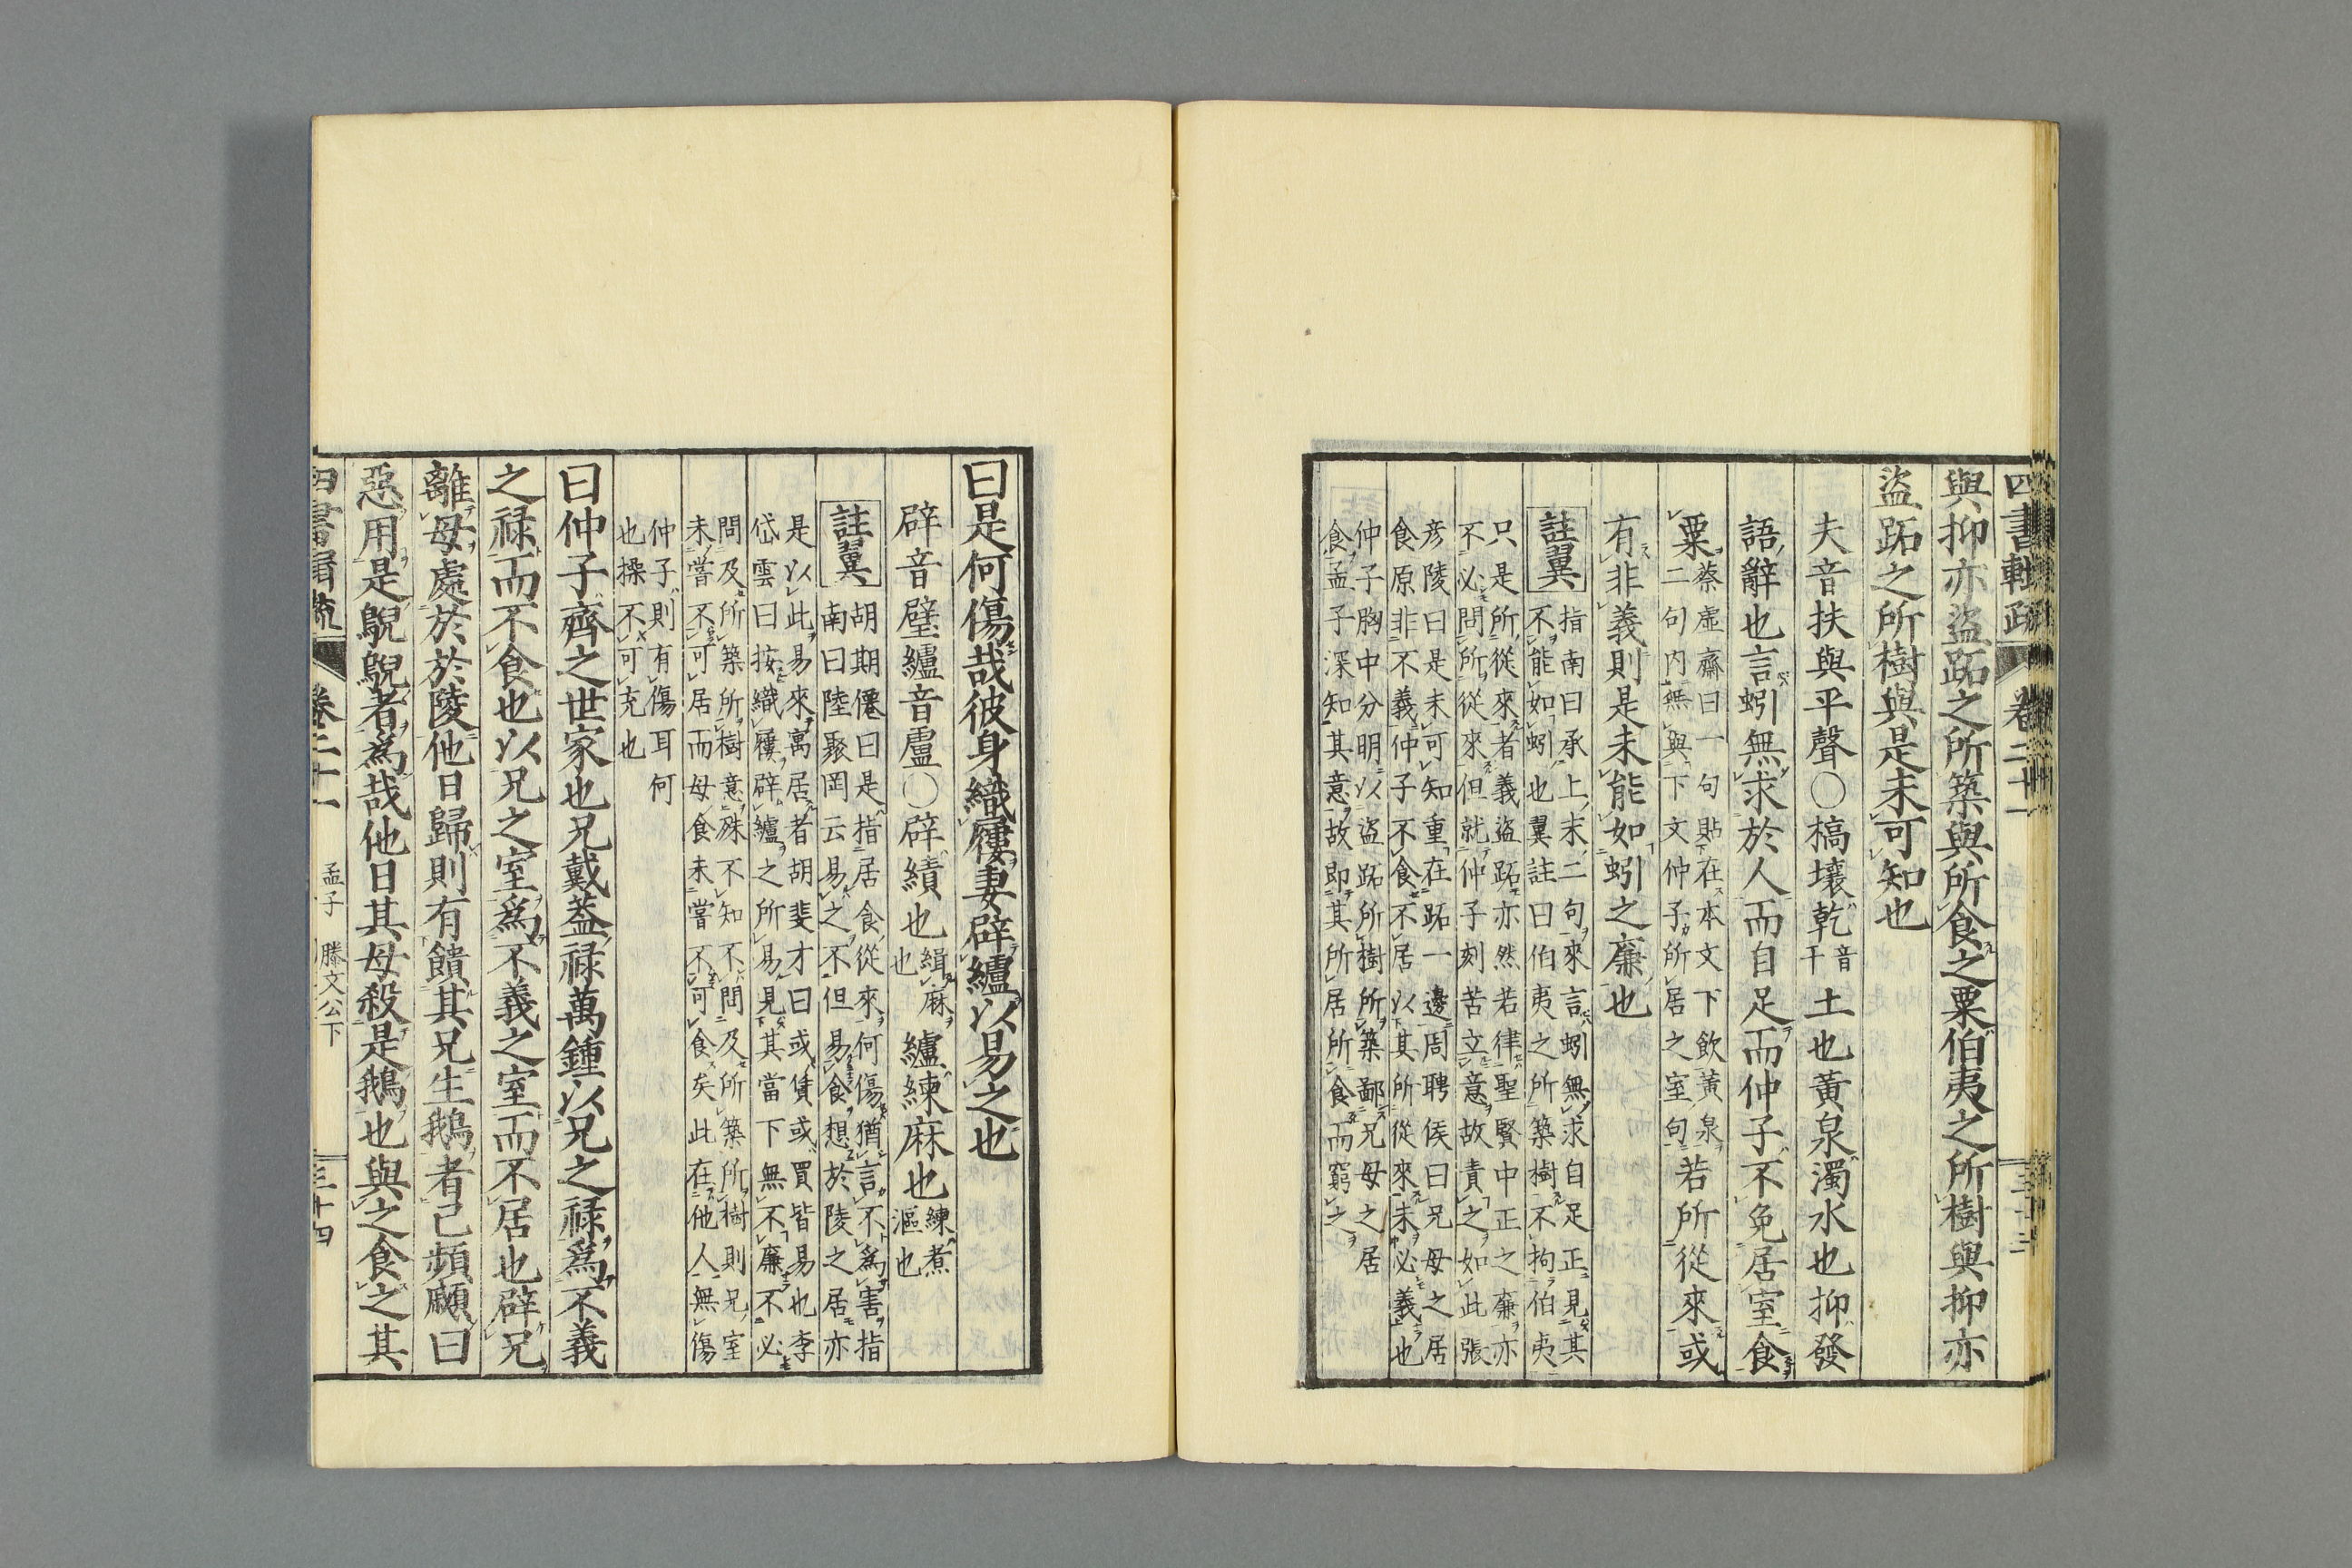 四書輯疏 卷二十一
與抑亦盜跖之所築與所食之粟伯夷之所樹與抑亦
盜跖之所樹與是未可知也
夫音扶與平聲○槁壤乾音干土也黃泉濁水也抑發
語辭也言蚓無求於人而自足而仲子不免居室食
粟蔡虛齋曰一句貼在本文下飲黃泉二句内無與下文仲子所居之室句若所從來或
有非義則是未能如蚓之廉也
註翼 指南曰承上末二句來言蚓無求自足正見其
不能如蚓也翼註曰伯夷之所築樹不拘伯夷
只是所從來者義盜跖亦然若律聖賢中正之廉亦
不必問所從來但就仲子刻苦立意故責之如此張
彦陵曰是未可知重在跖一邊周聘侯曰兄母之居
食原非不義仲子不食不居以其所從來未必義也
仲子胸中分明以盜跖所樹所築鄙兄母之居
食孟子深知其意故即其所居所食而窮之
曰是何傷哉彼身織屨妻辟纑以易之也
辟音璧纑音盧○辟績也緝麻也纑練麻也練煮漚也
註翼 胡期僊曰是指居食從來何傷猶言不爲害指
南曰陸聚岡云易之不但易食想於陵之居亦
是以此易來寓居者胡斐才曰或賃或買皆易也李
岱雲曰按織屨辟纑之所易見其當下無不廉不必
問及所築所樹意殊不知不問及所築所樹則兄室
未嘗不可居而母食未嘗不可食矣此在他人無傷
仲子則有傷耳何
也操不可充也
曰仲子齊之世家也兄戴蓋祿萬鍾以兄之祿爲不義
之祿而不食也以兄之室爲不義之室而不居也辟兄
離母處於於陵他日歸則有饋其兄生鵝者己頻顣曰
惡用是鶃鶃者爲哉他日其母殺是鵝也與之食之其
四書輯疏 卷二十一 孟子 滕文公下 三十四